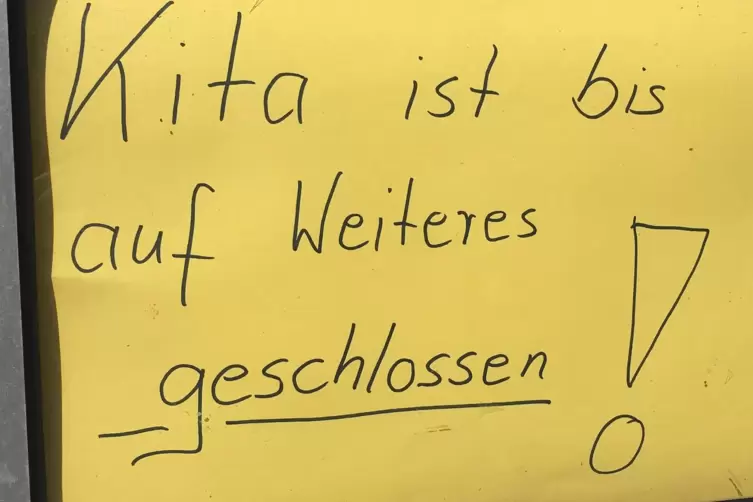 Kita ist bis
auf Weiteres
geschlossen !